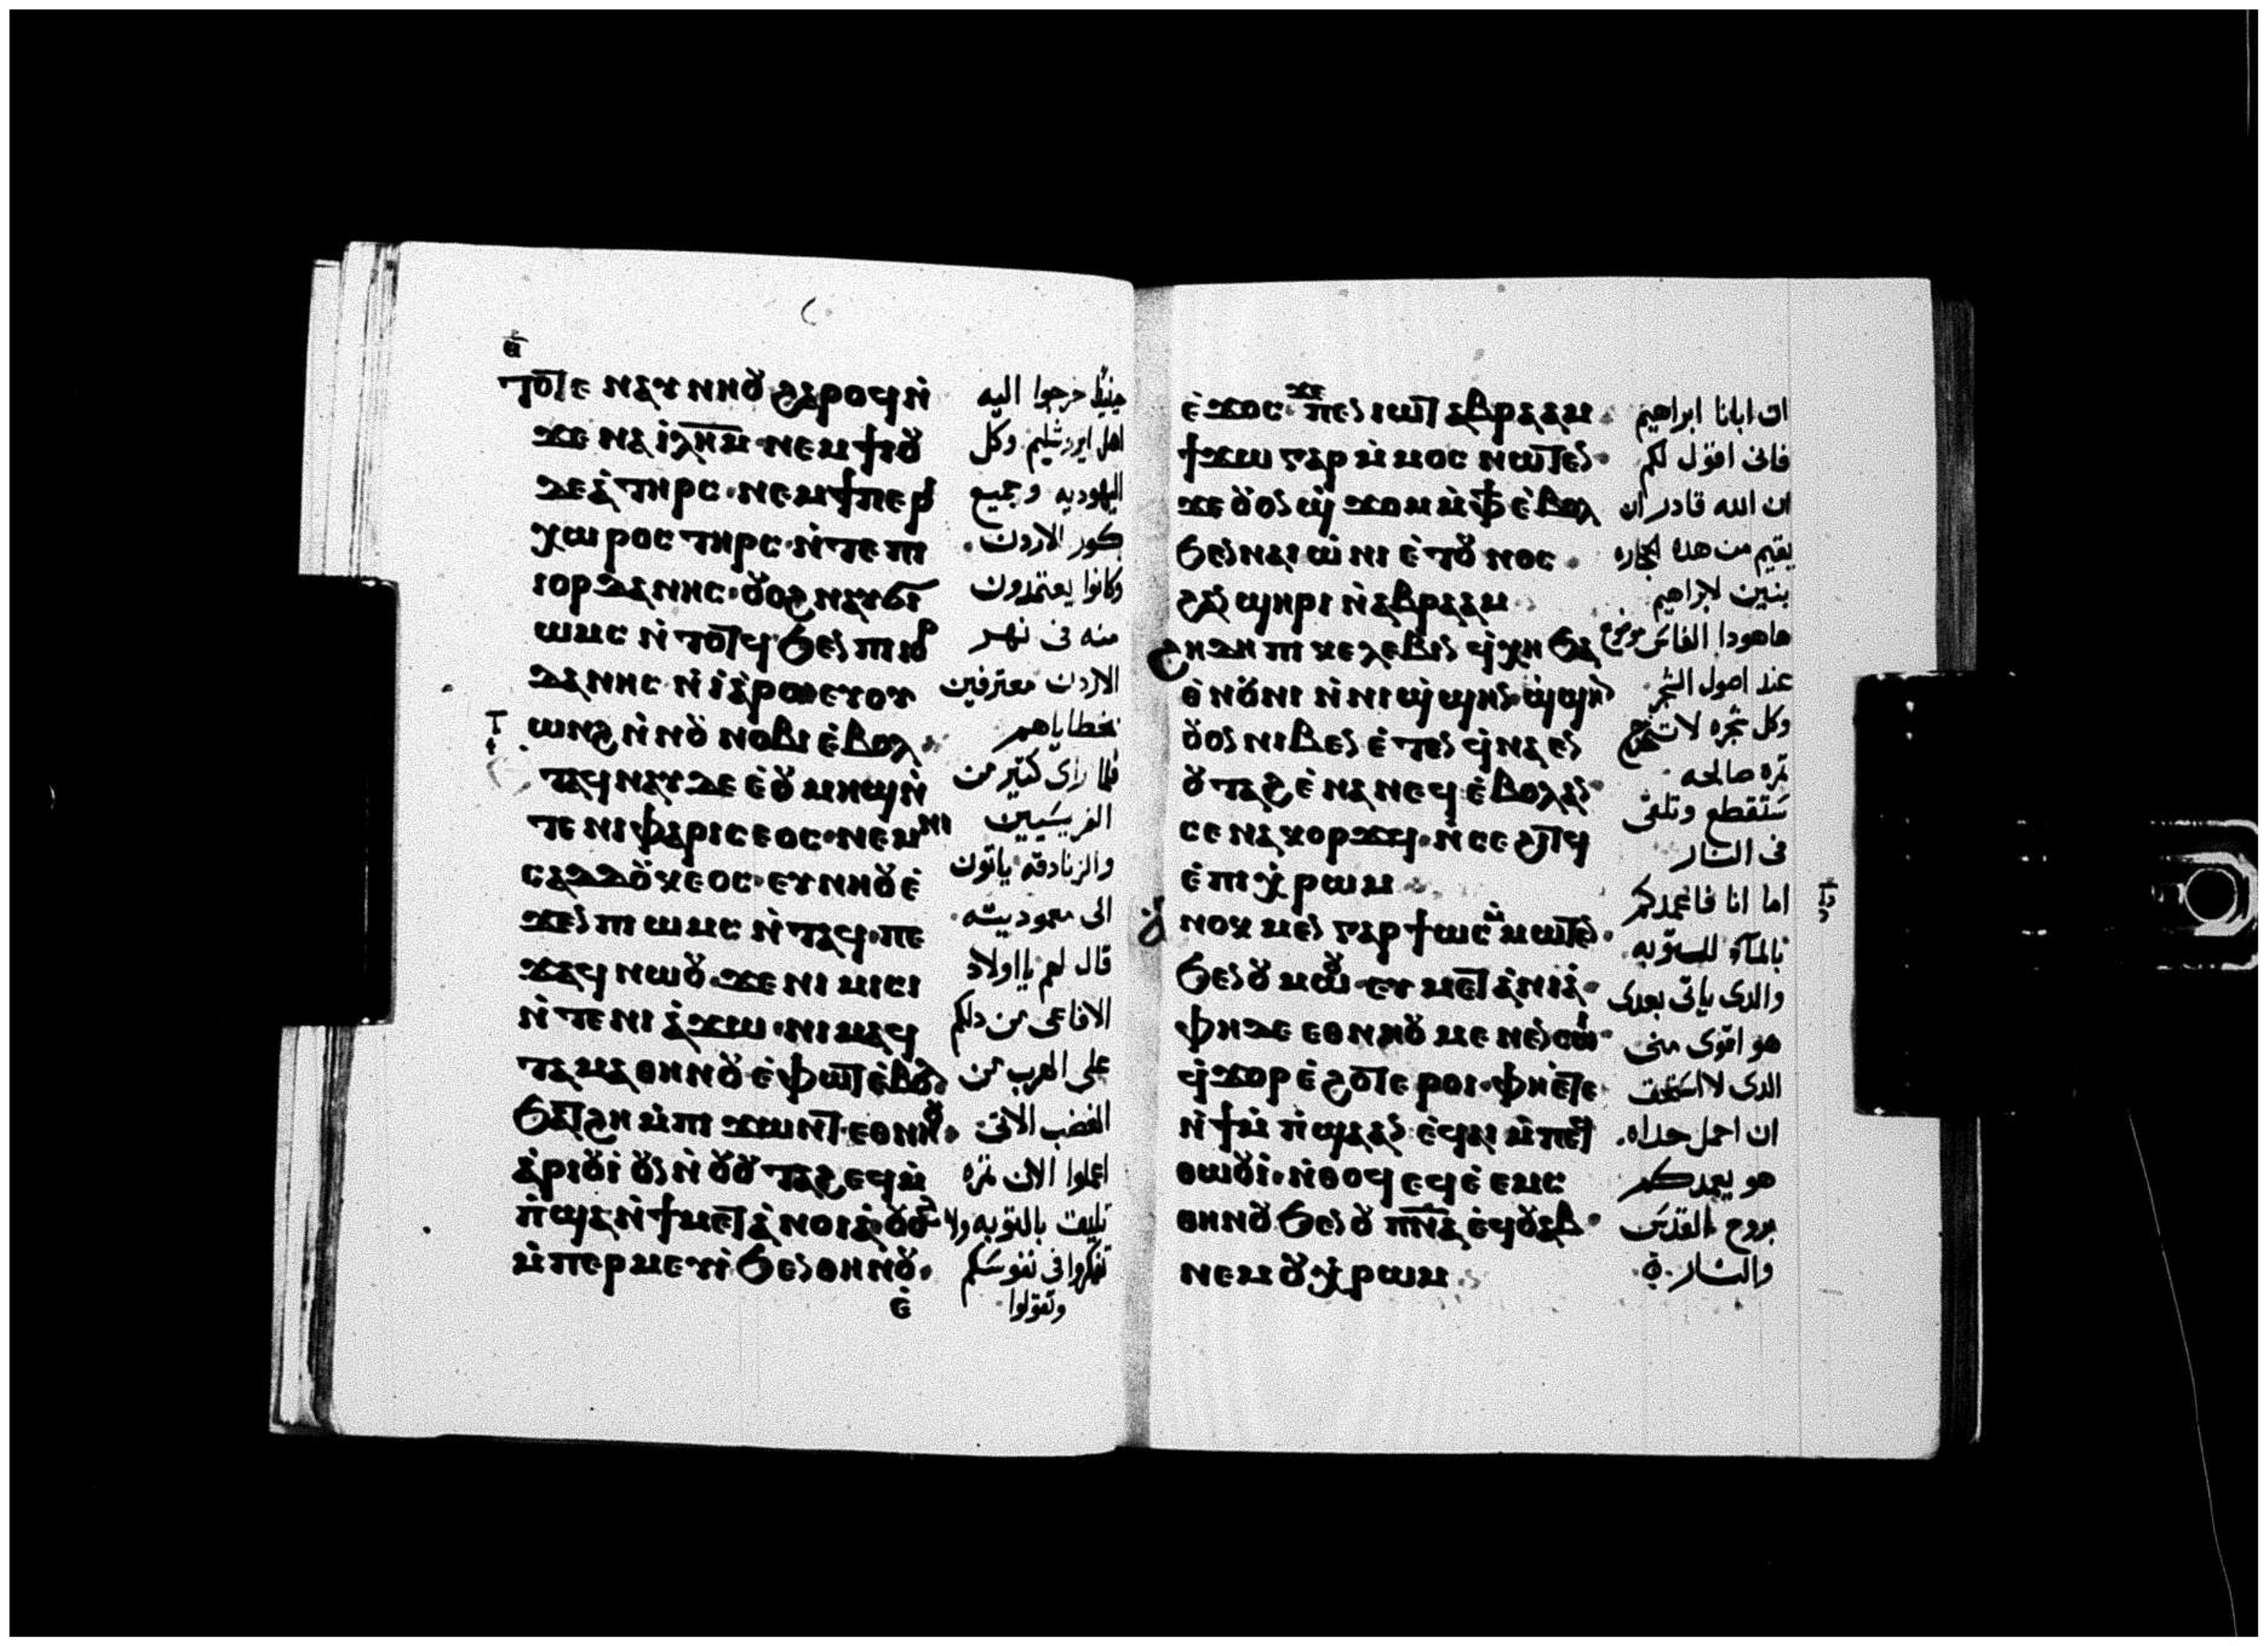 ⲧⲟⲧⲉ ⲛⲁⲩⲛⲏⲟⲩ ϩⲁⲣⲟϥ ⲛ̇
ϫⲉ ⲛⲁ ⲓⲗ̅ⲏ̅ⲙ̅ · ⲛⲉⲙ ϯⲓⲟⲩ
ⲇⲉⲁ̇ ⲧⲏⲣⲥ · ⲛⲉⲙ ϯⲡⲉⲣⲓ
ⲭⲱⲣⲟⲥ ⲧⲏⲣⲥ · ⲛ̇ⲧⲉ ⲡⲓ
ⲓⲟⲣⲇⲁⲛⲏⲥ · ⲟⲩⲟϩ ⲛⲁⲩϭⲓ
ⲱⲙⲥ ⲛ̇ⲧⲟⲧϥ ϧⲉⲛ ⲡⲓⲓⲟⲣ
ⲇⲁⲛⲏⲥ ⲛ̇ⲓⲁ̇ⲣⲟ ⲉⲩⲟⲩ
ⲱⲛϩ ⲛ̇ⲛⲟⲩ ⲛⲟⲃⲓ ⲉ̇ⲃⲟⲗ
ⲧⲁϥⲛⲁⲩ ⲇⲉ ⲉ̇ⲟⲩⲙⲏϣ ⲛ̇
ⲧⲉ ⲛⲓⲫⲁⲣⲓⲥⲉⲟⲥ · ⲛⲉⲙ ⲛⲓ
ⲥⲁⲇⲇⲟⲩⲕⲉⲟⲥ · ⲉⲩⲛⲏⲟⲩ ⲉ̇
ϫⲉⲛ ⲡⲓⲱⲙⲥ ⲛ̇ⲧⲁϥ · ⲡⲉ
ϫⲁϥ ⲛⲱⲟⲩ · ϫⲉ ⲛⲓⲙⲓⲥⲓ
ⲛ̇ⲧⲉ ⲛⲓⲁ̇ϫⲱ · ⲛⲓⲙ ⲁϥ
ⲧⲁⲙⲁ ⲑⲏⲛⲟⲩ ⲉ̇ⲫⲱⲧ ⲉ̇ⲃⲟⲗ
ϧⲁⲧϩⲏ ⲙ̇ⲡⲓϫⲱⲛⲧ · ⲉⲑⲛⲏⲟⲩ ·
ⲁ̇ⲣⲓⲟⲩⲓ̇ ⲟⲩⲛ ⲛ̇ⲟⲩⲟⲩⲧⲁϩ ⲉϥⲙ̇
ⲡ̇ϣⲁ ⲛ̇ϯⲙⲉⲧⲁ̇ⲛⲟⲓⲁ̇ · ⲟⲩⲟϩ
ⲙ̇ⲡⲉⲣⲙⲉⲩⲓ̇ ϧⲉⲛ ⲑⲏⲛⲟⲩ ·
ⲉ̇
حينيذ خرجوا اليه
اهل ايروشليم وكل
اليهوديه وجميع
كور الاردن .
وكانوا يعتمدون
منه في نهر
الاردن معترفين
بخطاياهم
فلما راى كتير من
الفريسيين
والزنادقه ياتون
الى معموديته .
قال لهم يااولاد
الافاعى من دلكم
على الهرب من
الغضب الاتى
اعملوا الان تمره
تليق بالتوبه ولا
تفكروا فى نفوسكم
وتقولوا
ⲉ̇ϫⲟⲥ ϫⲉ ⲡⲉⲛⲓⲱⲧ ⲁⲃⲣⲁⲁⲙ
ϯϫⲱ ⲅⲁⲣ ⲙ̇ⲙⲟⲥ ⲛⲱⲧⲉⲛ ·
ϫⲉ ⲟⲩⲟⲛ ϣϫⲟⲙ ⲙ̇ⲫϯ ⲉ̇ⲃⲟⲗ
ϧⲉⲛ ⲛⲁⲓⲱ̇ⲛⲓ ⲉ̇ⲧⲟⲩⲛⲟⲥ ·
ϩⲁⲛϣⲏⲣⲓ ⲛ̇ⲁⲃⲣⲁⲁⲙ
ϩⲏⲇⲏ ⲡⲓⲕⲉⲗⲉⲃⲓⲛ ϥⲭⲏ ϧⲁ
ⲑ̇ⲛⲟⲩⲛⲓ ⲛ̇ⲛⲓϣϣⲏⲛ · ϣϣⲏⲛ
ⲟⲩⲟⲛ ⲛⲓⲃⲉⲛ ⲉ̇ⲧⲉⲛϥⲛⲁⲉⲛ
ⲟⲩⲧⲁϩ ⲉ̇ⲛⲁⲛⲉϥ ⲉ̇ⲃⲟⲗ ⲁⲛ ·
ⲥⲉⲛⲁⲕⲟⲣϫϥ · ⲛ̇ⲥⲉϩⲓⲧϥ
ⲉ̇ⲡⲓⲭ̇ⲣⲱⲙ
ⲁⲛⲟⲕ ⲙⲉⲛ ⲅⲁⲣ ϯⲱⲙⲥ ⲙ̇ⲙⲱⲧⲉⲛ ·
ϧⲉⲛ ⲟⲩⲙⲱⲟⲩ · ⲉⲩⲙⲉⲧⲁ̇ⲛⲓⲁ̇ ·
ⲫⲏ ⲇⲉ ⲉⲑⲛⲏⲟⲩ ⲙⲉⲛⲉⲛⲥⲱⲓ
ϥϫⲟⲣ ⲉ̇ϩⲟⲧⲉ ⲣⲟⲓ · ⲫⲏ ⲉ̇ⲧⲉ
ⲛ̇ϯⲙ̇ⲡ̇ϣⲁ ⲁⲛ ⲉ̇ϥⲁⲓ ⲙ̇ⲡⲉϥ
ⲑⲱⲟⲩⲓ̇ · ⲛ̇ⲑⲟϥ ⲉϥⲉ̇ⲉⲙⲥ
ⲑⲏⲛⲟⲩ ϧⲉⲛ ⲟⲩⲡ̅ⲛ̅ⲁ̅ ⲉ̇ϥⲟⲩⲁⲃ ·
ⲛⲉⲙ ⲟⲩⲭ̇ⲣⲱⲙ
ان ابانا ابراهيم
فانى اقول لكم
ان الله قادر ان
يقيم من هده الحجاره
بنين لابراهيم
هاهودا الفاس موضوع
عند اصول الشجر
وكل شجره لا تخرج
تمره صالحه
ستقطع وتلقى
فى النار
اما انا فاعمدكم
بالمآء للتوبه
والدى ياتى بعدى
هو اقوى منى
الدى لا استحق
ان احمل حداه .
هو يعمدكم
بروح القدس
والنار .